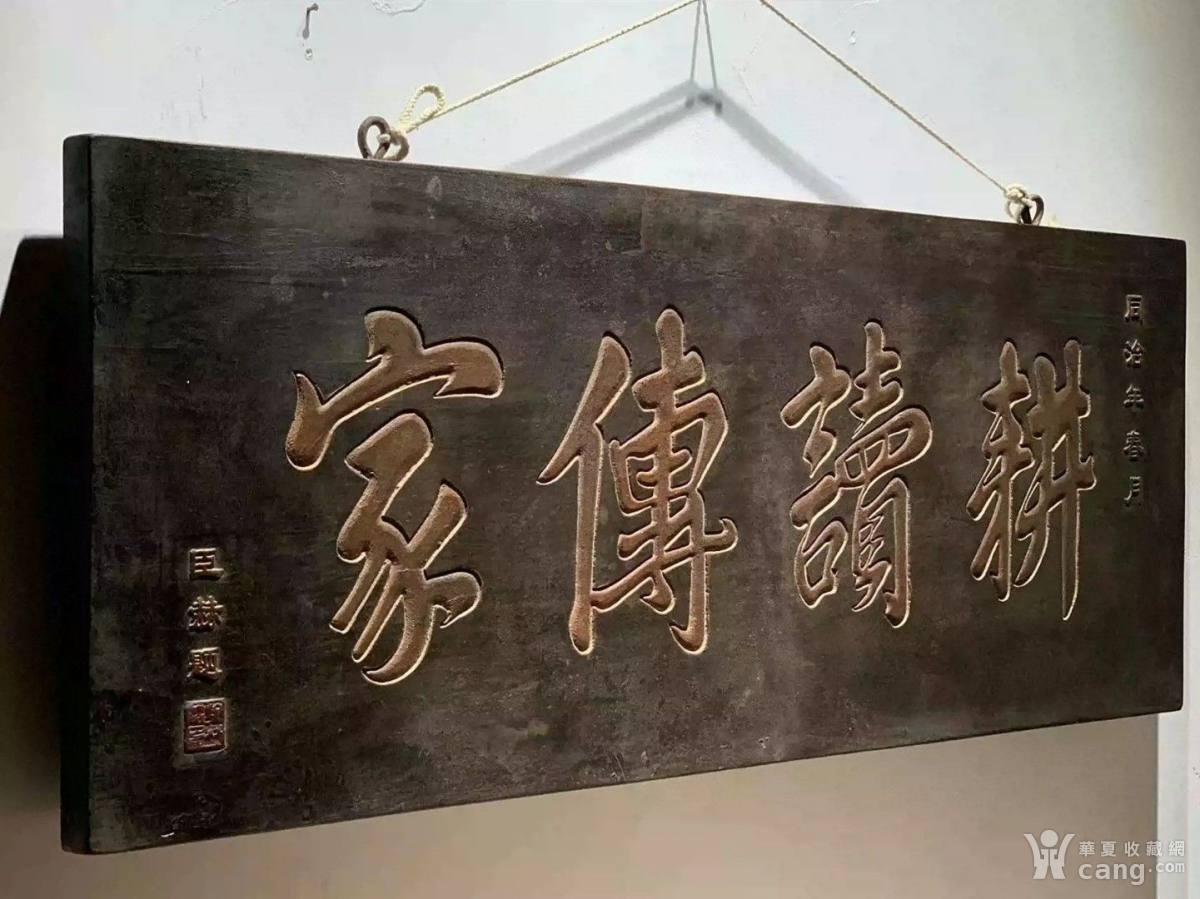 同治年春月
耕讀傳家
臣赫题
華夏收藏網
cang.com